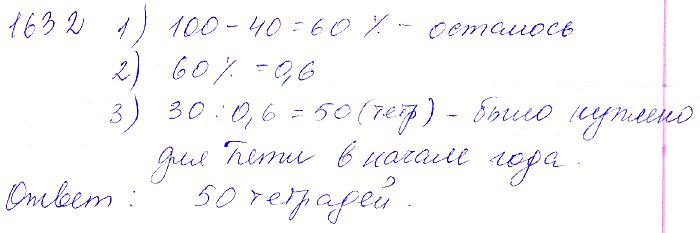 1632 1) 100 - 40 = 60 % - осталось
2) 60 % = 0,6
3) 30 : 0,6 = 50 (тетр) - было куплено
для Пети в начале года.
Ответ : 50 тетрадей.